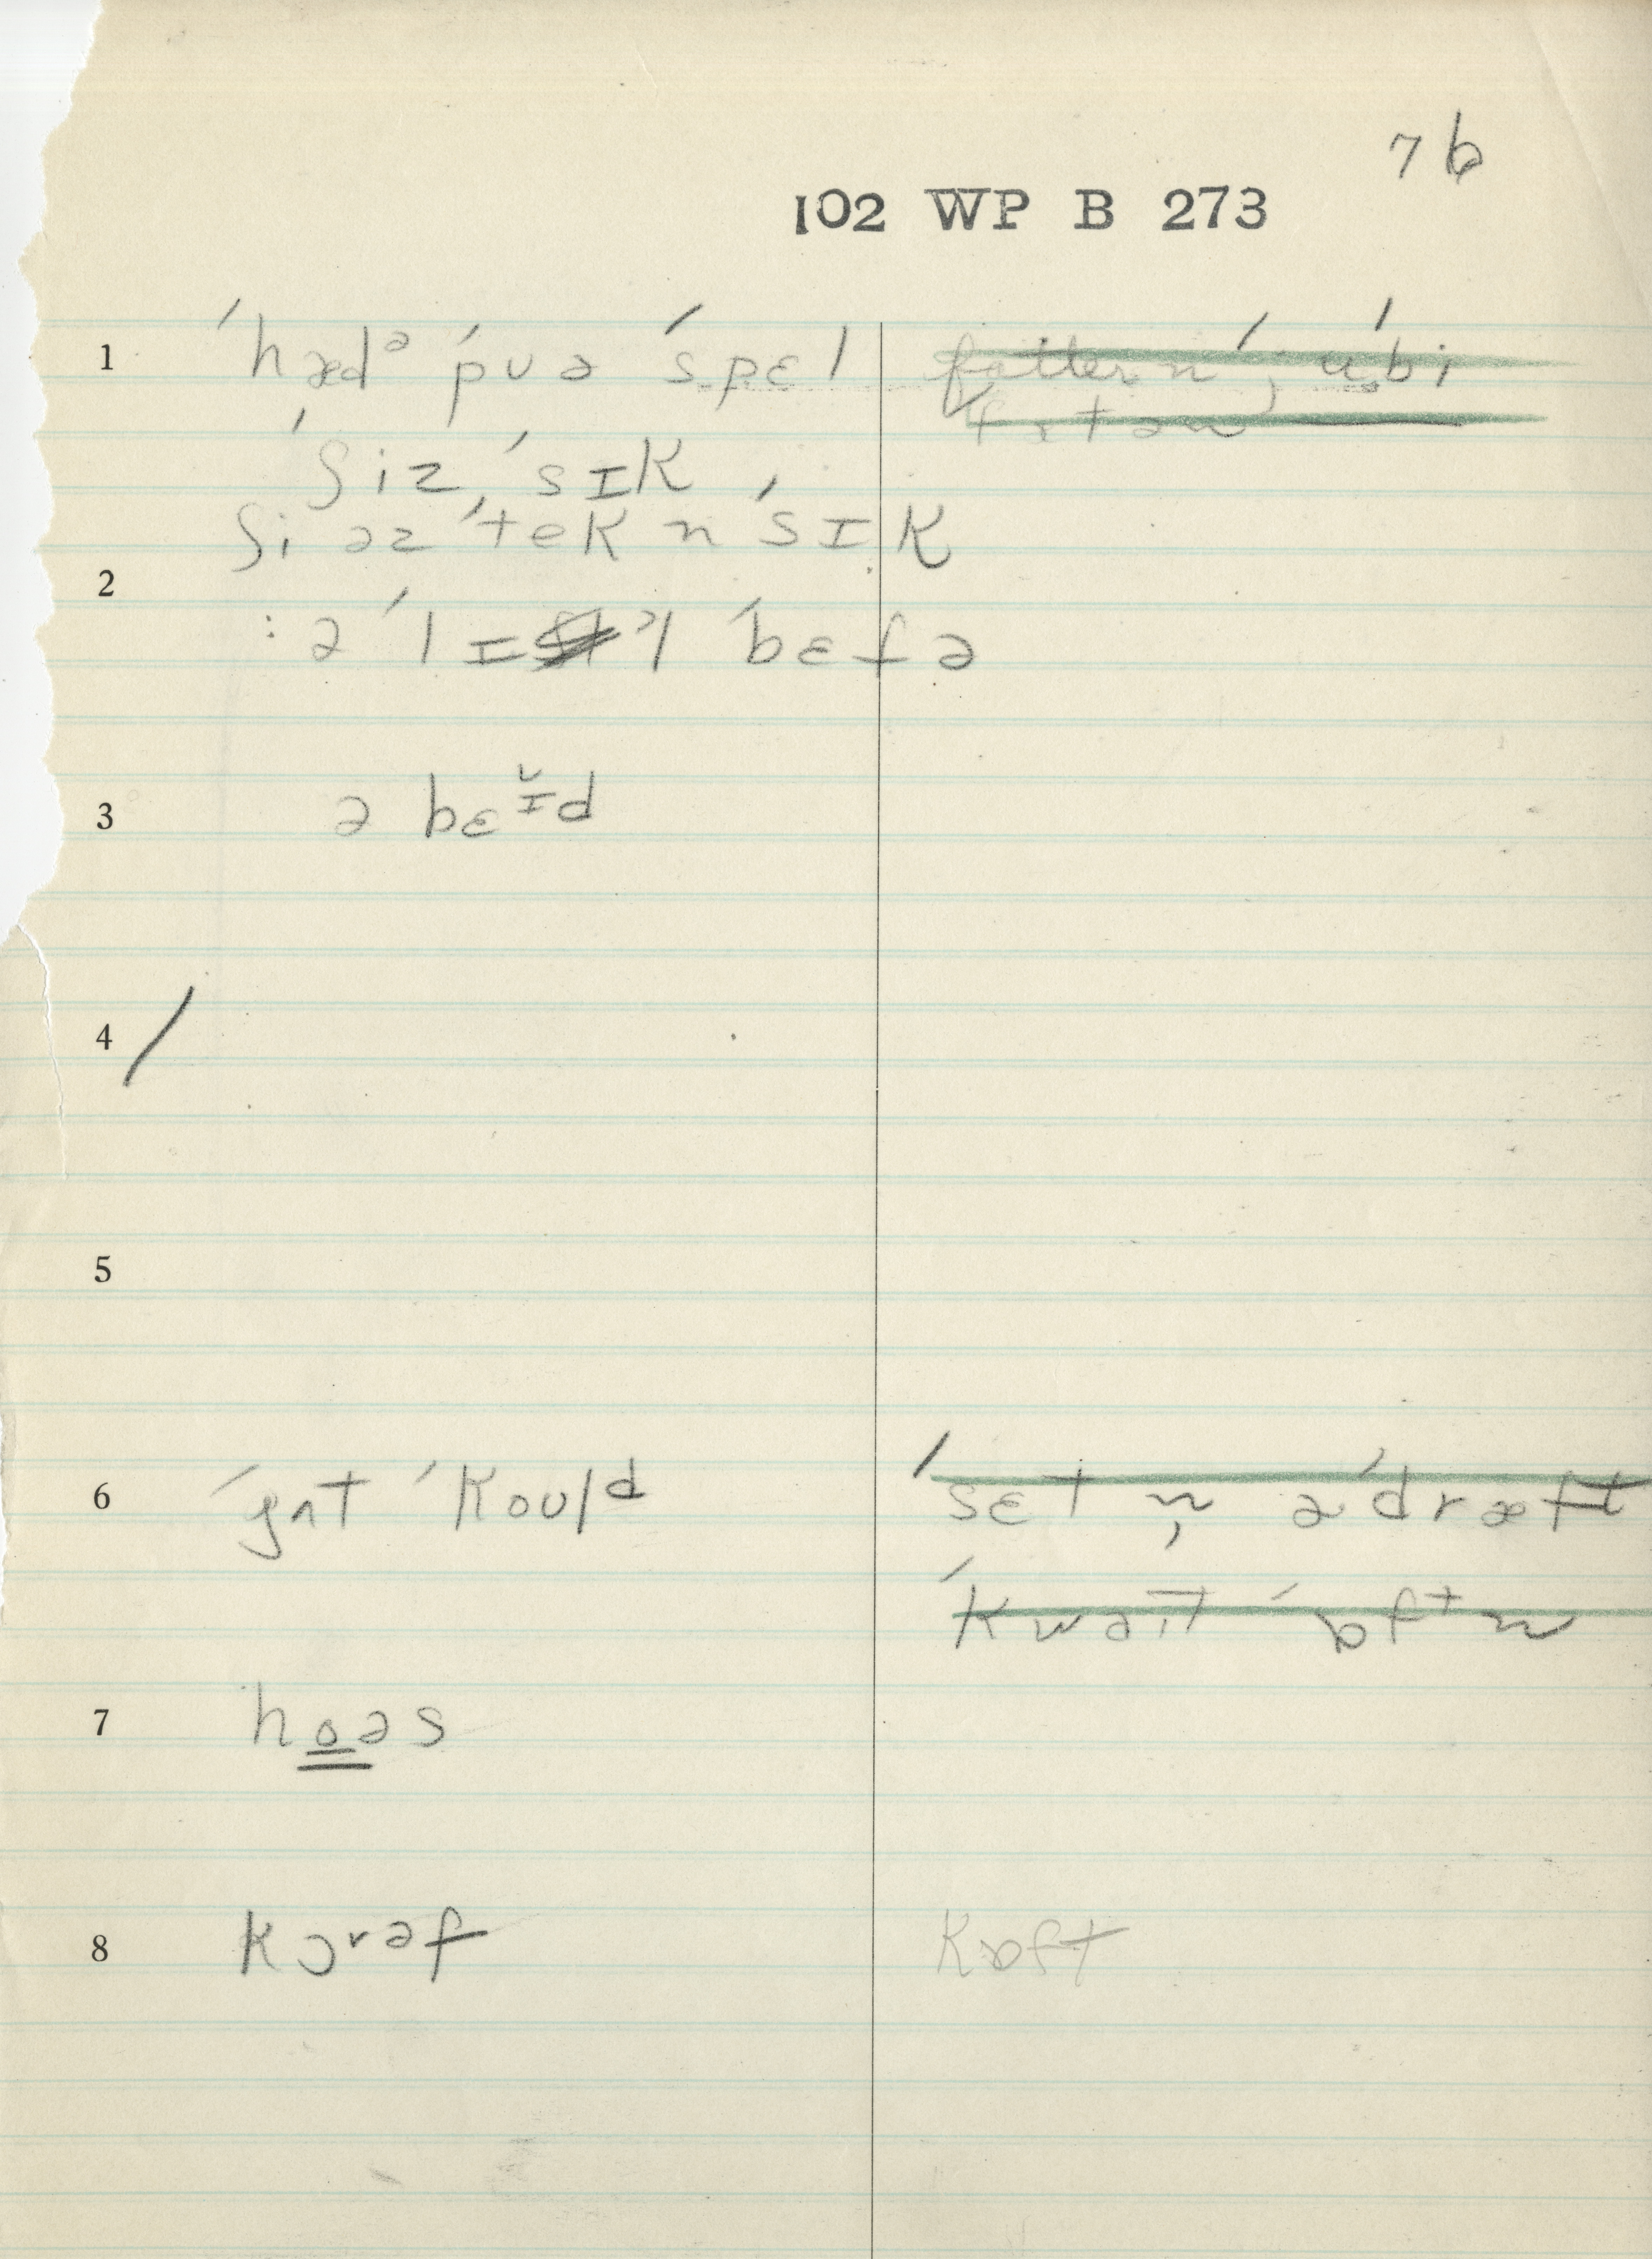 76
102 WP B 273
1 ˈhædᵊ ˈpuə ˈspɛl
ˈʃiz ˈsɪk
ʃi əz ˈtek n ˈsɪk
2
: ə ˈlɪ ᵊl ˈbɛfə
3 ə bɛɪ̆d
4 /
5
6 ˈgɑt ˈkould ˈsɛt n̩ ə ˈdræft
ˈkwəit ˈɒftn
7 hoəs
8 kɔrəf kɒft